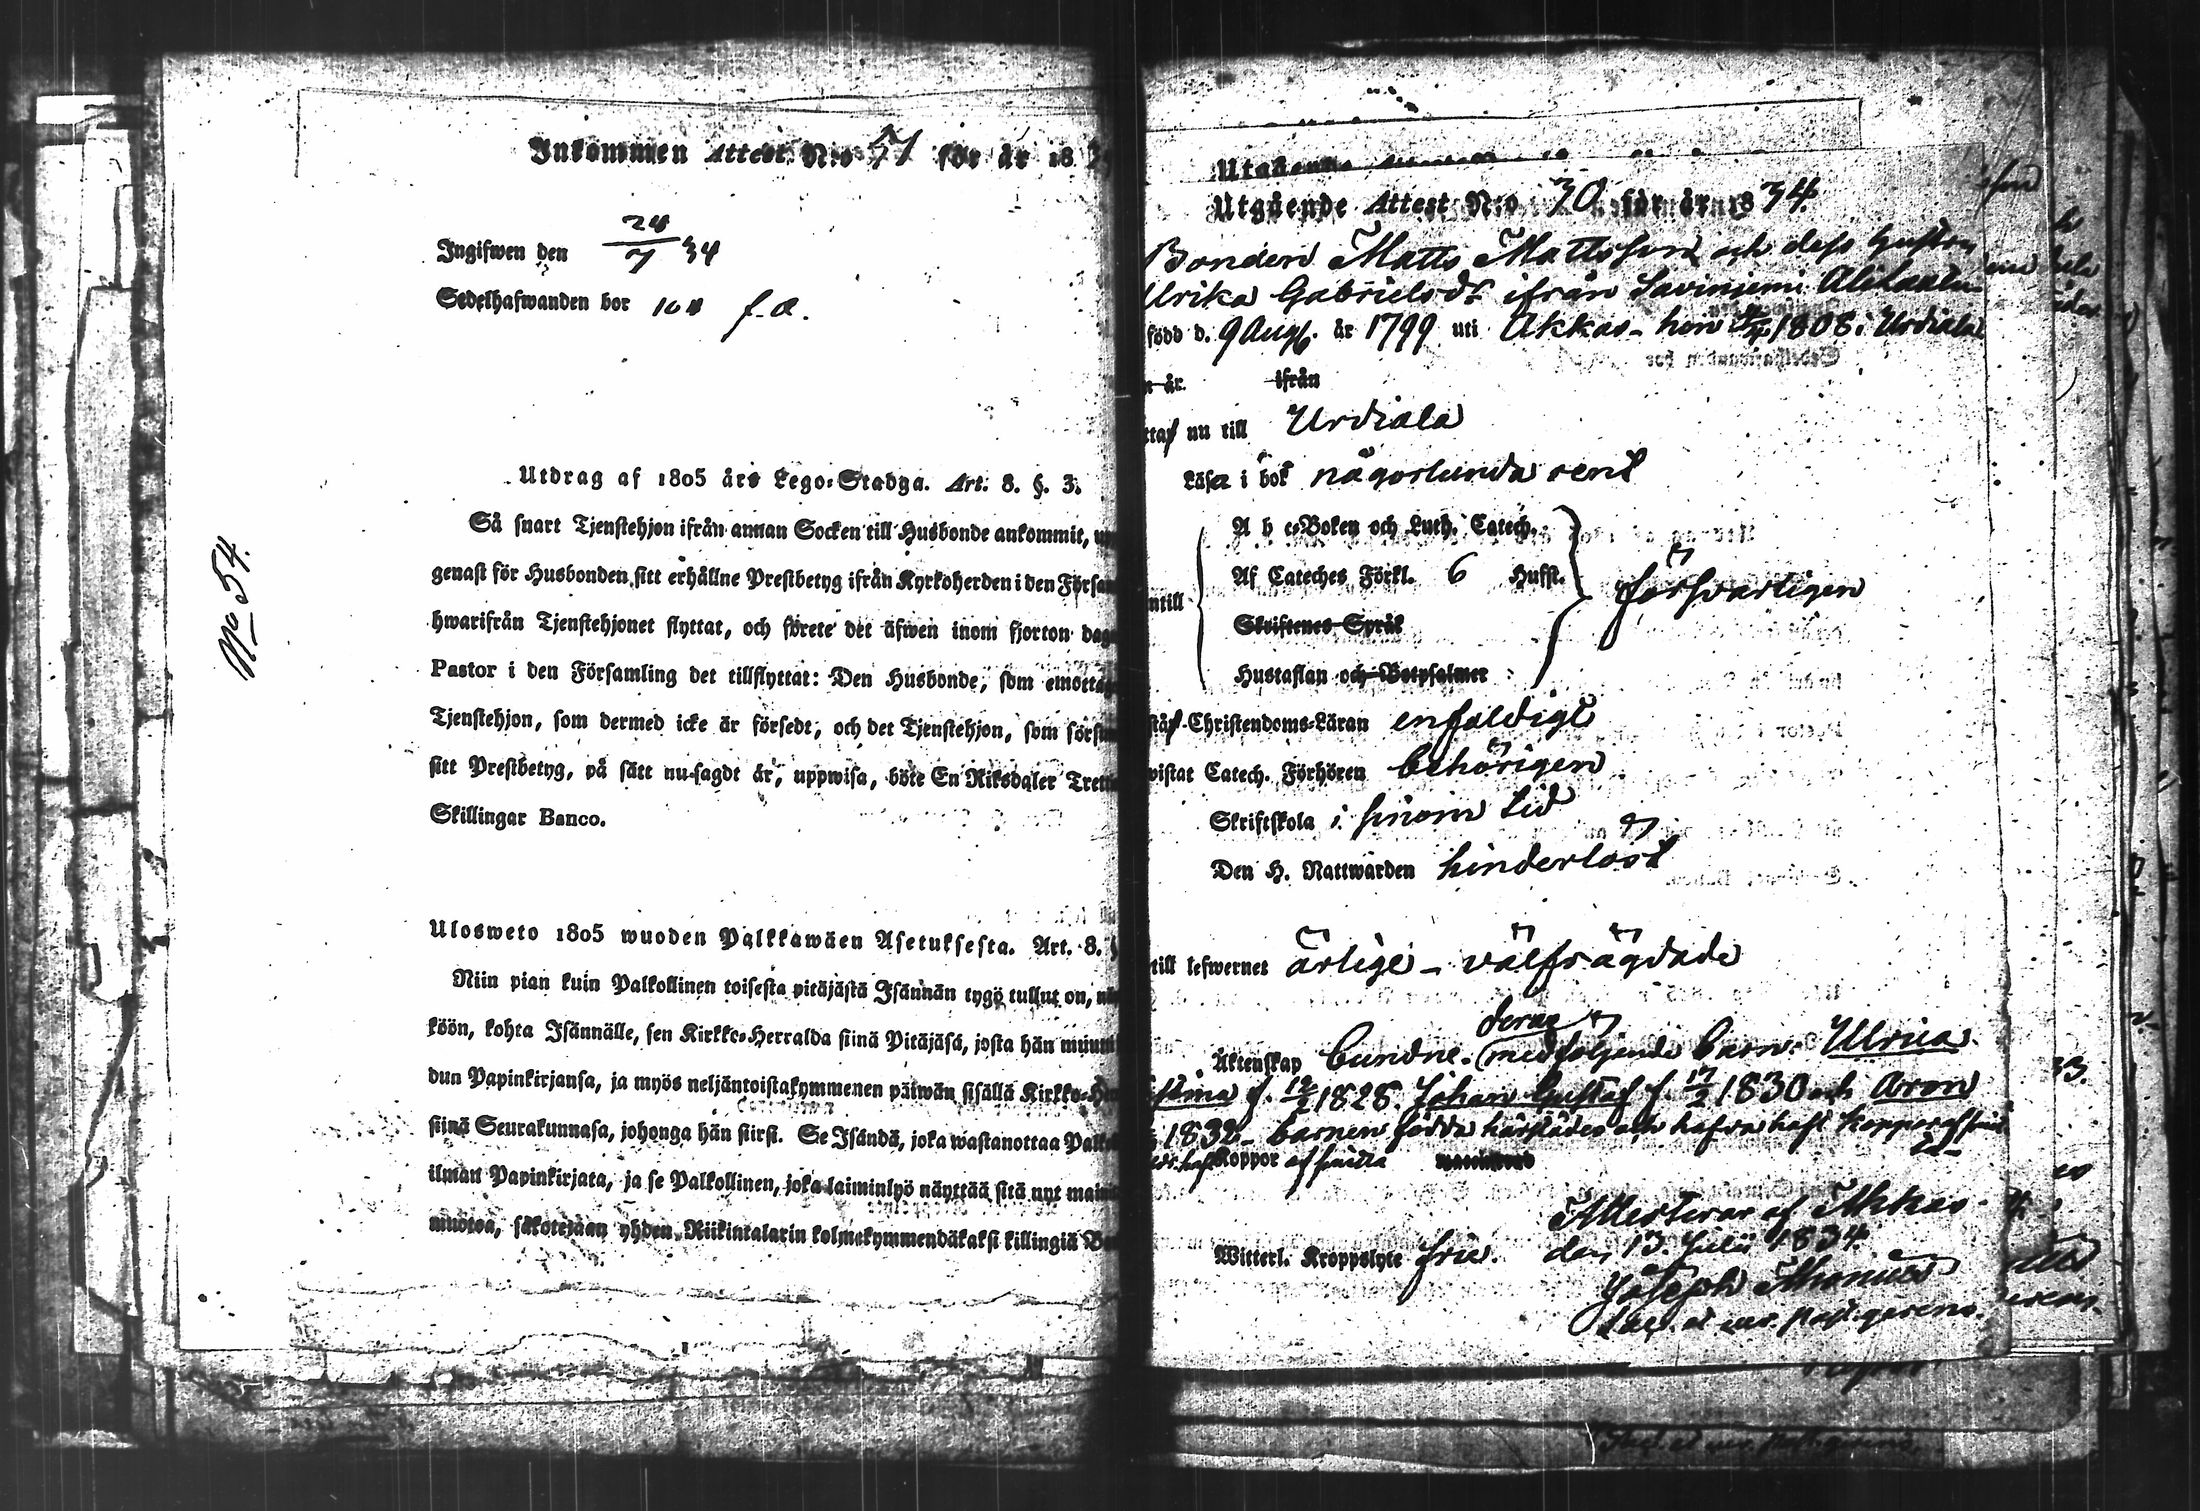 Inkommen Attest N:o 57 för år 18
Ingifwen den 24/7 34
Sedelhafwanden bor 104 f. a.
No 54.
Utdrag af 1805 års Lego-Stadga. Art. 8. §. 3.
Så snart Tjenstehjon ifrån annan Socken till Husbonde ankommit,
genast för Husbonden sitt erhållne Prestbetyg ifrån Kyrkoherden i den Försam
hwarifrån Tjenstehjonet flyttat, och förete det äfwen inom fjorton dag
Pastor i den Församling det tillflyttat: Den Husbonde, som emottag
Tjenstehjon, som dermed icke är försedt, och det Tjenstehjon, som försum
sitt Prestbetyg, på sätt nu sagdt är, uppwisa, böte En Riksdaler Trettio
Skillingar Banco.
Ulosweto 1805 wuoden Palkkawäen Asetuksesta. Art. 8. §
Niin pian kuin Palkollinen toisesta pitäjästä Isännän tygö tullut on,
köön, kohta Isännälle, sen Kirkko-Herralda siinä Pitäjäsä, josta hän muut
dun Papinkirjansa, ja myös neljäntoistakymmenen päiwän sisällä Kirkko-Her
siinä Seurakunnasa, johonga hän siirsi. Se Isändä, joka wastanottaa Palko
ilman Papinkirjata, ja se Palkollinen, joka laiminlyö näyttää sitä nyt main
muotoa, sakotetaan yhden Riikintalarin kolmekymmendäkaksi killingiä Ban
Utgående Attest N:o 30 för år 1834.
Bonden Matts Mattsson och dess hustru
Ulrika Gabrielsdr ifrån Saviniemi Alitaalo
född d. 9 Aug. år 1799 uti Akkas - hon 1808 i Urdiala
år. ifrån
nu till Urdiala
Läsa i bok någorlunda rent
A b c-Boken och Luth. Catech.
Af Cateches Förkl. 6 Hufst.
ntill försvarligen
Skriftenes Språk
Hustaflan och Botpsalmer
Christendoms-Läran enfaldigt
wistat Catech. Förhören behörigen
Skriftskola i sinom tid
Den H. Nattwarden hinderlöst
till lefwernet ärlige - välfrägdade
Äktenskap bundne. deras medföljende barn: Ulrica
stina f. 12/2 1828. Johan Gustaf f. 17/2 1830 och Aron
1832 - barnen födda härstädes och hafva haft koppor
Koppor af
Witterl. Kroppslyte frie.
Attesterar af Akkas
den 13. Julii 1834
Joseph
Sac. et past. gerens.